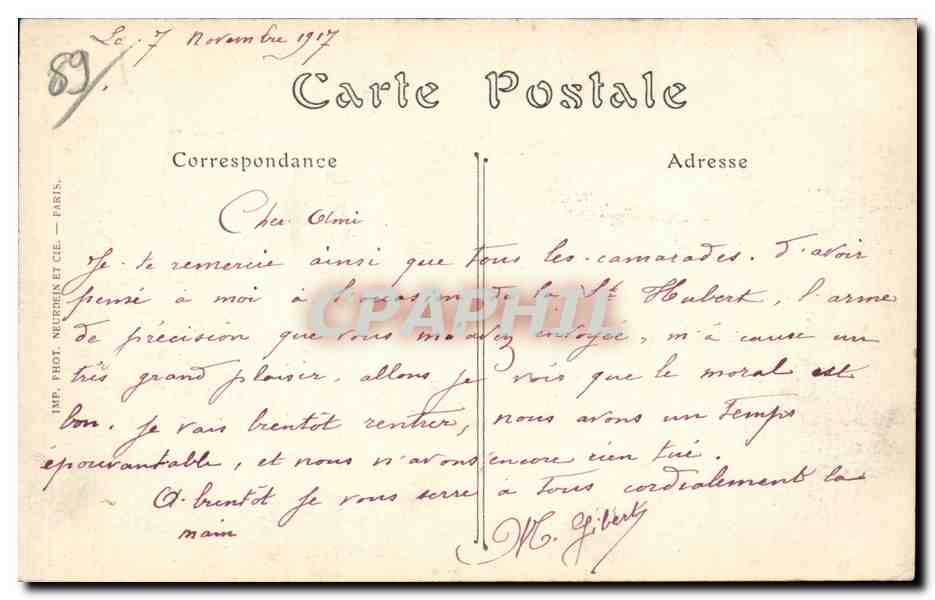 Le 7 Novembre 1917
89
Carte Postale
Correspondance
Adresse
IMP. PHOT. NEURDEIN ET CIE. — PARIS.
Cher Ami
Je te remercie ainsi que tous les camarades. d'avoir
pensé à moi à l'occasion de la St Hubert, l'arme
de précision que vous m'avez envoyée, m'a cause un
très grand plaisir, allons je vois que le moral est
bon. Je vais bientôt rentrer, nous avons un temps
épouvantable, et nous n'avons encore rien tué.
A bientôt Je vous serre à tous cordialement la
main
M. Gibert
CPAPHIL